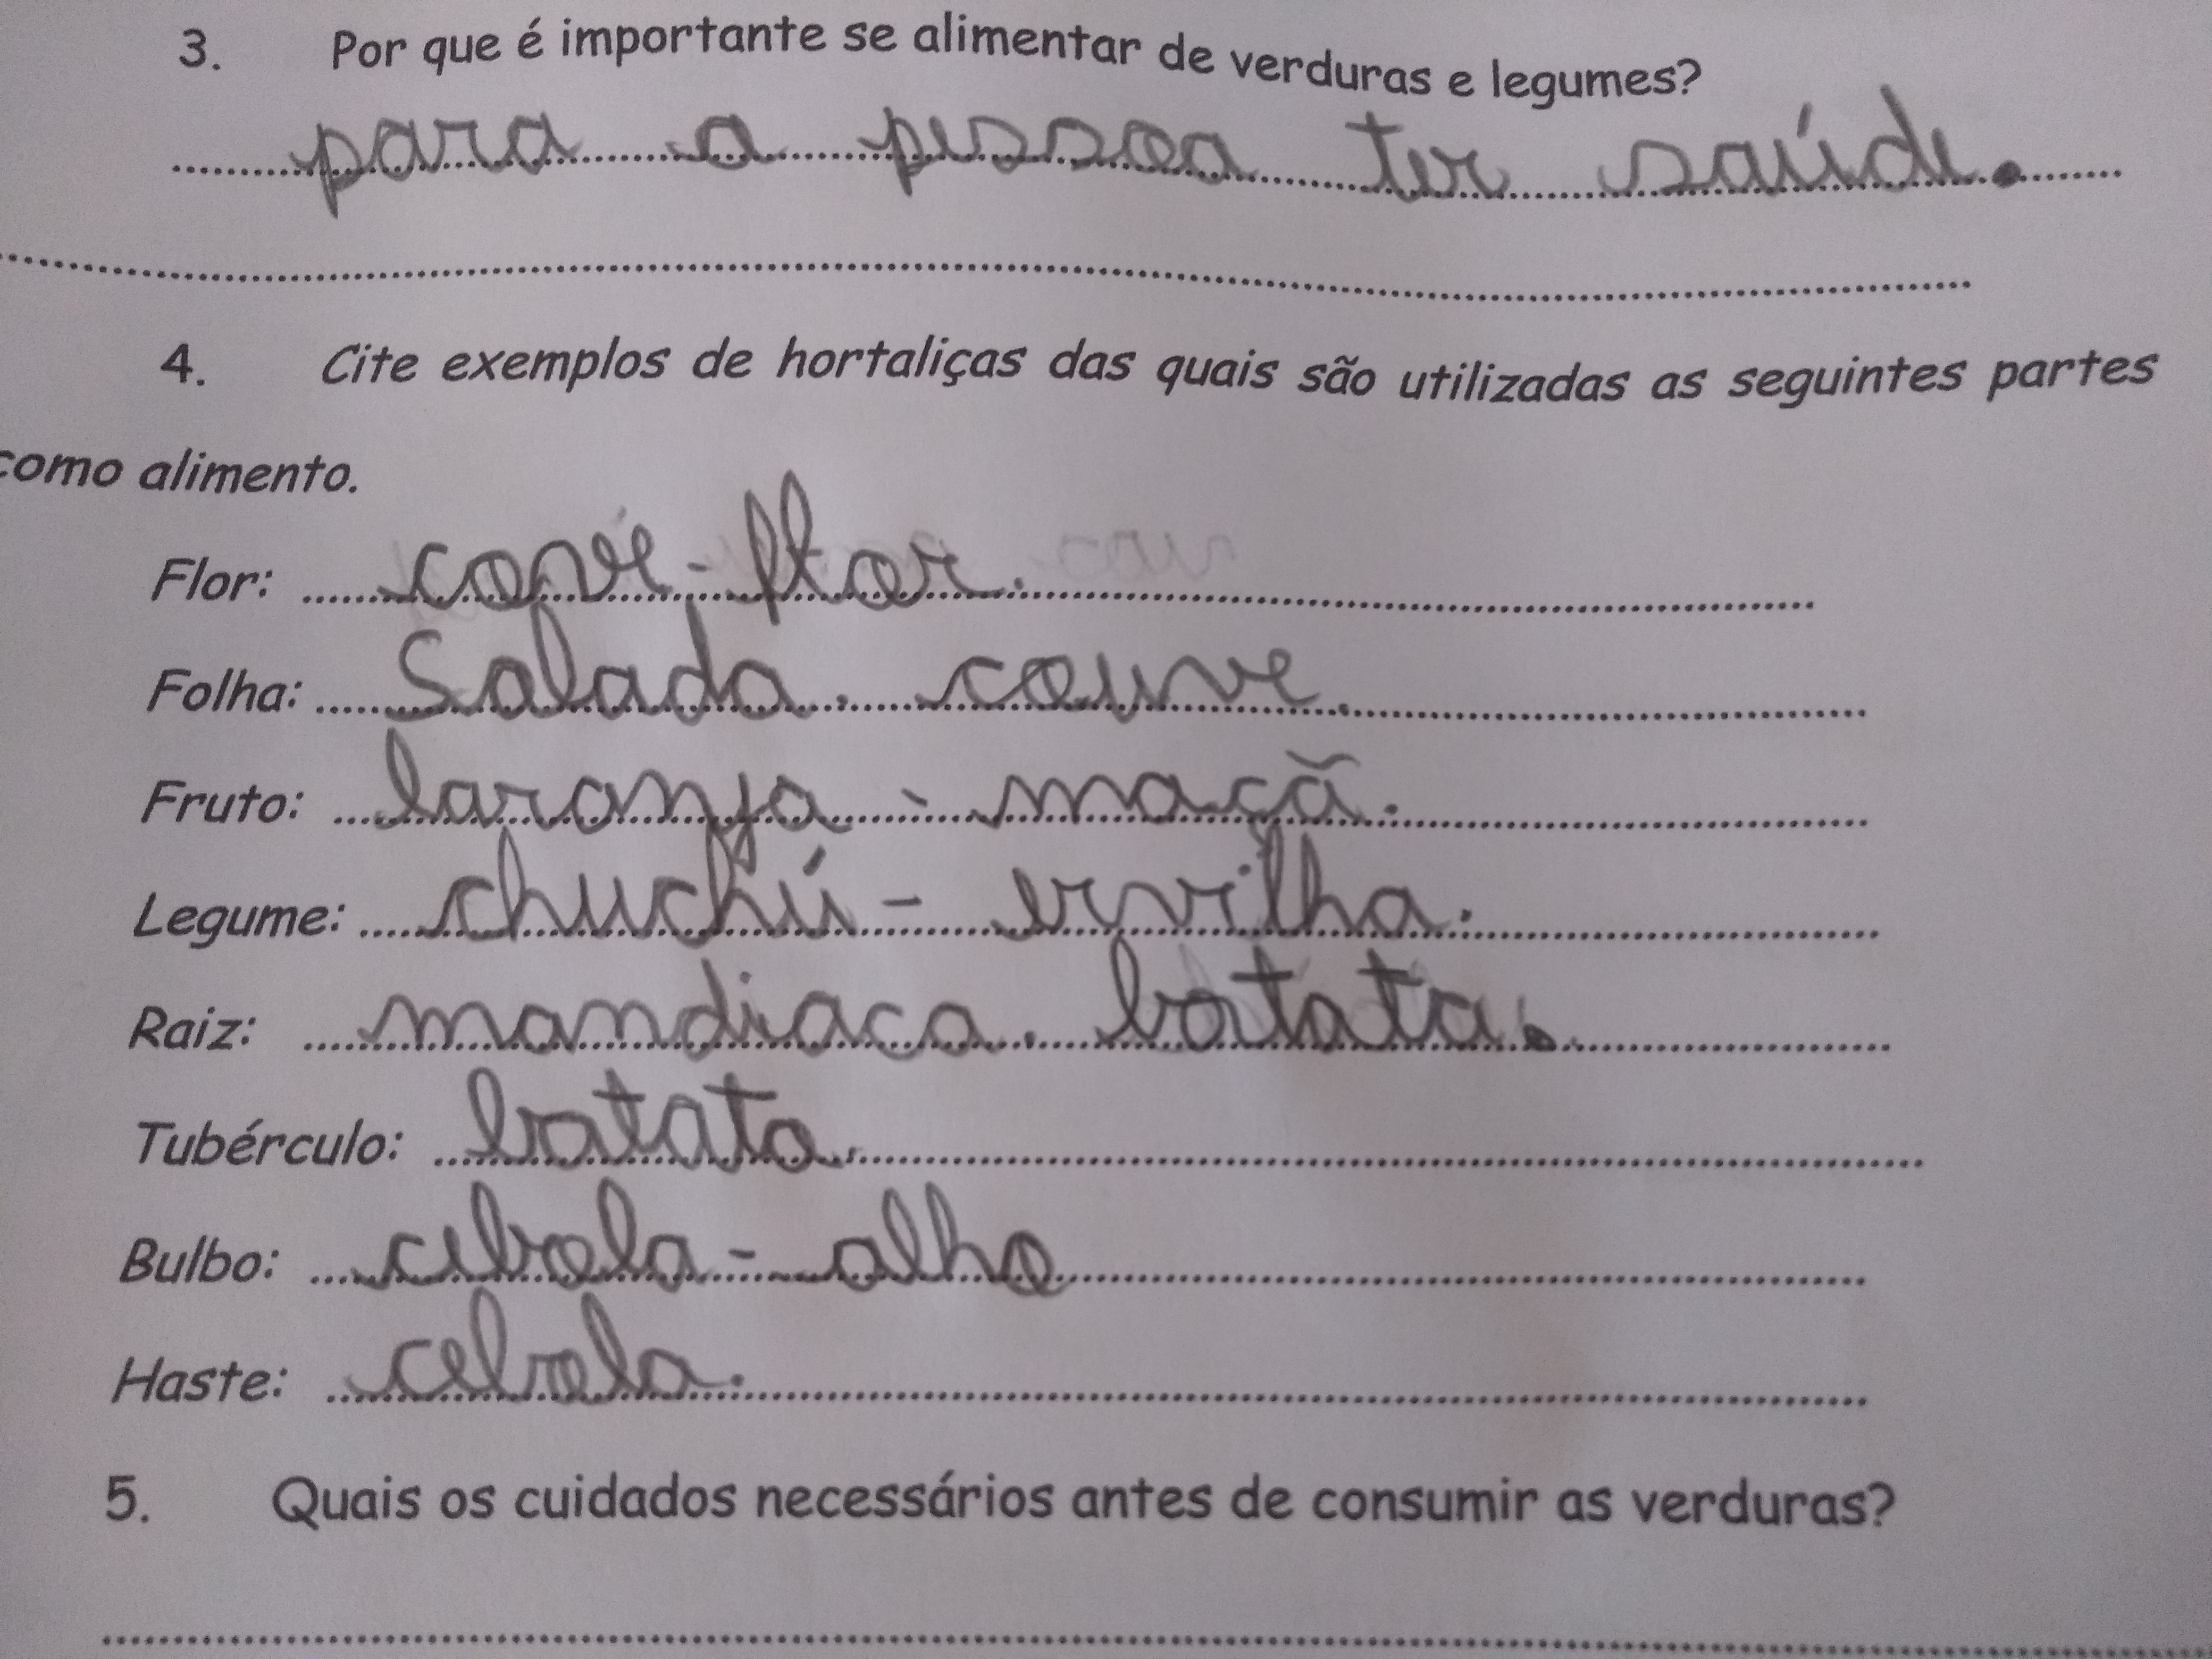 3. Por que é importante se alimentar de verduras e legumes?
para a pessoa ter saúde.
4. Cite exemplos de hortaliças das quais são utilizadas as seguintes partes
como alimento.
Flor: cové-flor.
Folha: Salada. couve.
Fruto: laranja - maçã.
Legume: chuchú - ervilha.
Raiz: mandiaca. batata.
Tubérculo: batata.
Bulbo: cebola - alho
Haste: cebola.
5. Quais os cuidados necessários antes de consumir as verduras?